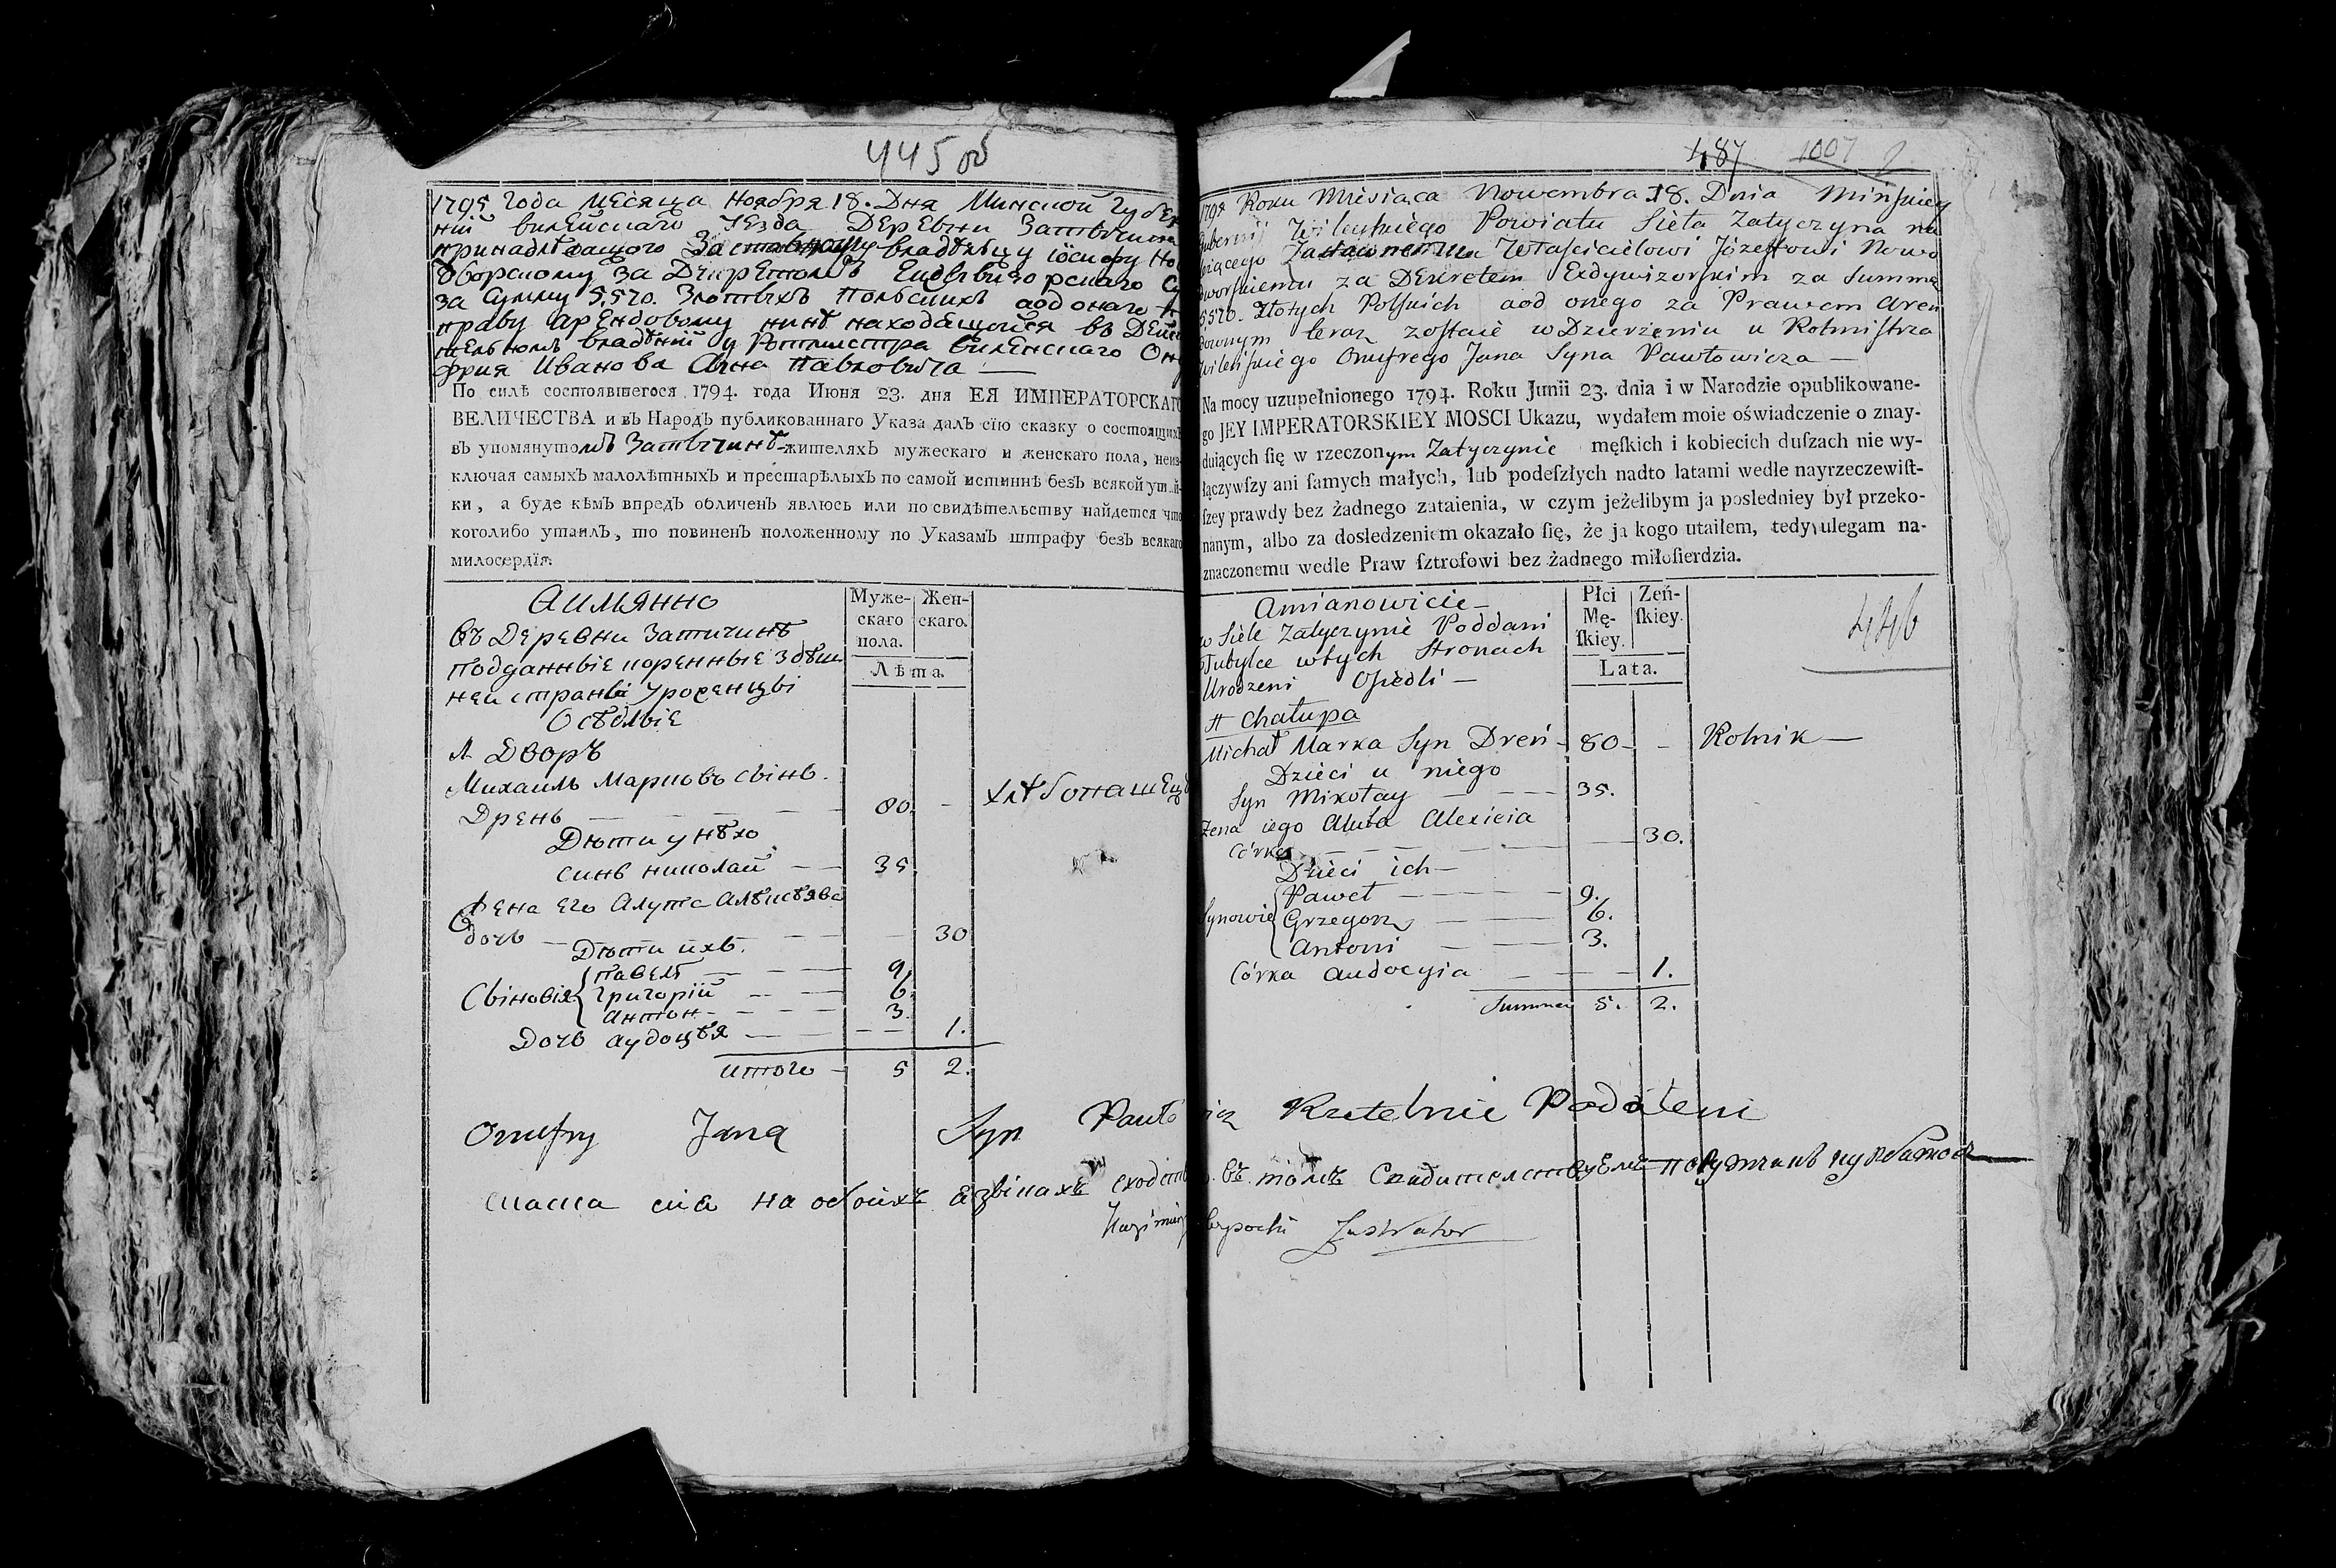 445 об
1795 Года Месяца Ноября 18. Дня Минской Губер
нии вилейскаго Уезда Деревни Затычина
принадлежащого владельцу Иосифу Но
дворскому за Декретомъ
за Сумму 5,570. Злотыхъ Польскихъ аод онаго
праву Арендовому нинѣ находящойся въ
владѣнии у Ротмистра виленскаго Он
уфрия Иванова Сына Павловича —
По силѣ состоявшегося 1794. года Июня 23. дня ЕЯ ИМПЕРАТОРСКАГО
ВЕЛИЧЕСТВА и въ Народѣ публикованнаго Указа далъ сїю сказку о состоящихъ
въ упомянутомъ Затычинѣ жителяхъ мужескаго и женскаго пола, неиз-
ключая самыхъ малолѣтныхъ и престарѣлыхъ по самой истиннѣ безъ всякой утай-
ки, а буде кѣмъ впредь обличенъ явлюсь или по свидѣтельству найдется что
коголибо утаилъ, то повиненъ положенному по Указамъ штрафу безъ всякаго
милосердїя.
Аимянно
Муже-
скаго
пола.
Жен-
скаго.
Лѣта.
въ Деревни Затичинѣ
подданные коренные здѣш
неи страны Уроженцы
Осѣдлые
1. Дворъ
Михаилъ Марковъ Сынъ
Дрень — 80. — хлѣбопашецъ
Дѣти у нѣхо
синъ николай — 35.
Жена Его Алута Алексѣева
дочь — 30
Дѣти ихъ.
Павелъ — 9.
Сыновія { Григорій — 6.
Антон — 3.
Дочь аудоцѣя — 1.
итого — 5 2.
487 1007
1795 Roku Miesiąca Nowembra 18. Dnia Mińskiey
Gubernij Wileyskiego Powiatu Sieła Zatyczyna na
leżącego Właścicielowi Józefowi Nowo
dworskiemu za Dekretem Exdywizorskim za Summę
5,570. Złotych Polskich aod onego za Prawem Aren
downym teraz zostaie w Dzierżeniu u Rotmistrza
Wileńskiego Onufrego Jana Syna Pawłowicza —
Na mocy uzupełnionego 1794. Roku Junii 23. dnia i w Narodzie opublikowane-
go JEY IMPERATORSKIEY MOSCI Ukazu, wydałem moie oświadczenie o znay-
duiących ſię w rzeczonym Zatyczynie męſkich i kobiecich duſzach nie wy-
łączywſzy ani ſamych małych, lub podeſzłych nadto latami wedle nayrzeczewiſt-
ſzey prawdy bez żadnego zataienia, w czym jeżelibym ja posledniey był przeko-
nanym, albo za dosledzeniem okazało ſię, że ja kogo utaiłem, tedy ulegam na-
znaczonemu wedle Praw ſztrofowi bez żadnego miłoſierdzia.
Amianowicie —
Płci
Mę-
ſkiey.
Zeń-
ſkiey.
Lata.
446
w Siele Zatyczynie Poddani
Tubylce w tych Stronach
Urodzeni Osiedli —
1 Chałupa
Michał Marka Syn Dreń — 80 — — Rolnik —
Dzieci u niego
Syn Mikołay — 35.
Żena iego Aluta Alexieia
Córka — 30.
Dzieci ich —
Paweł — 9.
Synowie { Grzegorz — 6.
Antoni — 3.
Córka Audocyia — 1.
Summa 5. 2.
Onufry Jana Syn Pawłowicz Rzetelnie Podałem
сказка сия на обоихъ азыкахъ сходства. въ томъ Свидителствуемъ
Lustrator